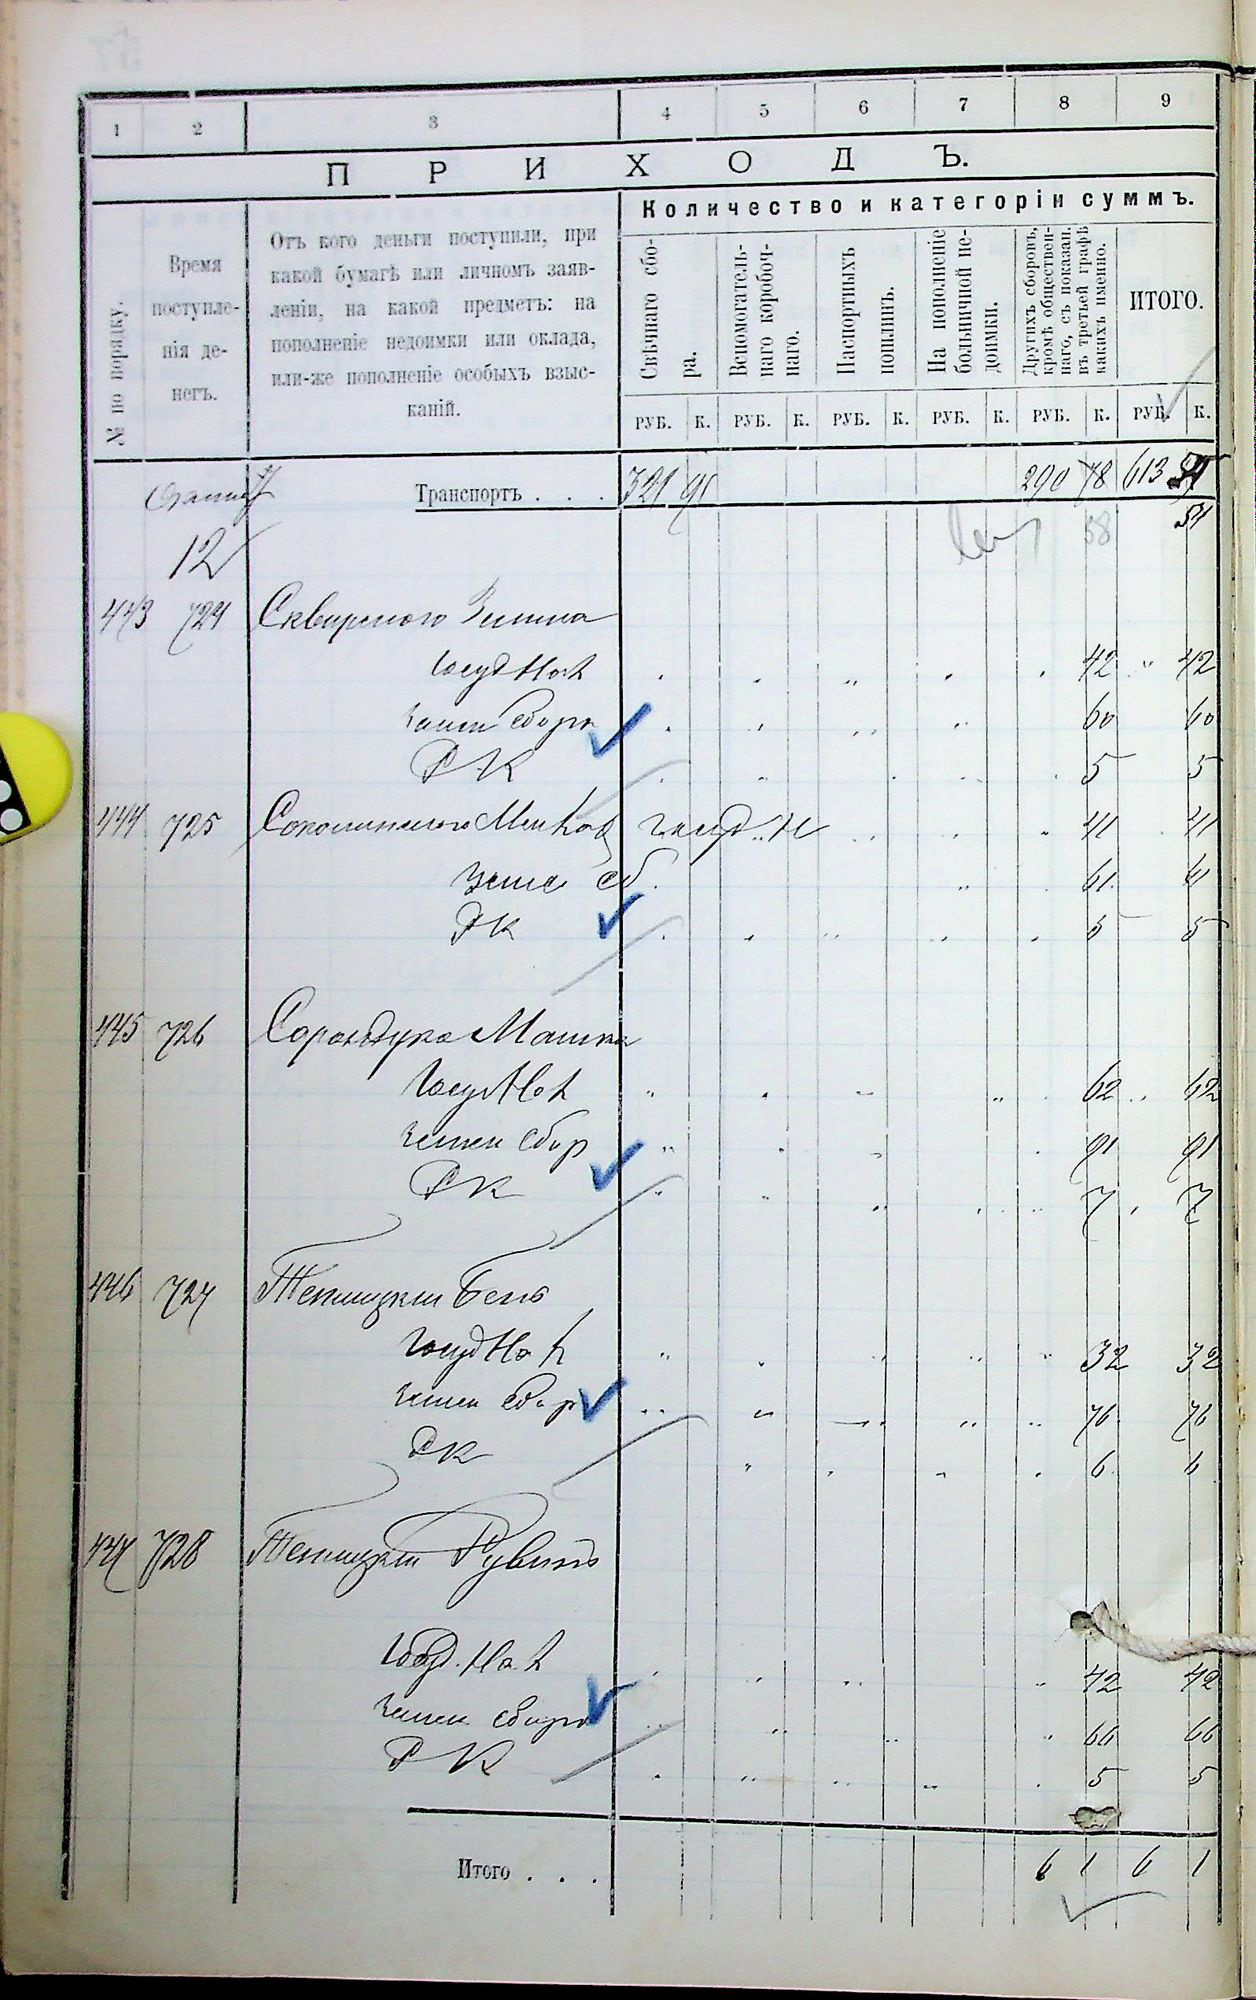 1 2 3 4 5 6 7 8 9
ПРИХОДЪ.
Количество и категоріи суммъ.
№ по порядку.
Время
поступле-
нія де-
негъ.
Отъ кого деньги поступили, при
какой бумагѣ или личномъ заяв-
леніи, на какой предметъ: на
пополненіе недоимки или оклада,
или-же пополненіе особыхъ взыс-
каній.
Свѣчнаго сбо-
ра.
Вспомогатель-
наго коробоч-
наго.
Паспортныхъ
пошлинъ.
На пополненіе
больничной не-
доимки.
Другихъ сборовъ,
кромѣ обществен-
наго, съ показан.
въ третьей графѣ
какихъ именно.
ИТОГО.
РУБ. К. РУБ. К. РУБ. К. РУБ. К. РУБ. К. РУБ. К.
Транспортъ . . . 321 91 290 78 613
58 51
12
443 724 Сквирского
Госуд Нал 42 42
Земск Сборъ 60 60
Р К 5 5
444 725 Госуд. Н 41 41
Земс сб. 61 61
Р К 5 5
445 726 Машка
Госуд Нал 62 62
Земск Сбор 91 91
Р К 7 7
446 727 Теплицкій Беръ
Госуд Нал 32 32
Земск Сбор 76 76
Р К 6 6
447 728 Теплицкій Рувинъ
Госуд. Нал 42 42
Земск Сборъ 66 66
Р К 5 5
Итого . . . 6 1 6 1